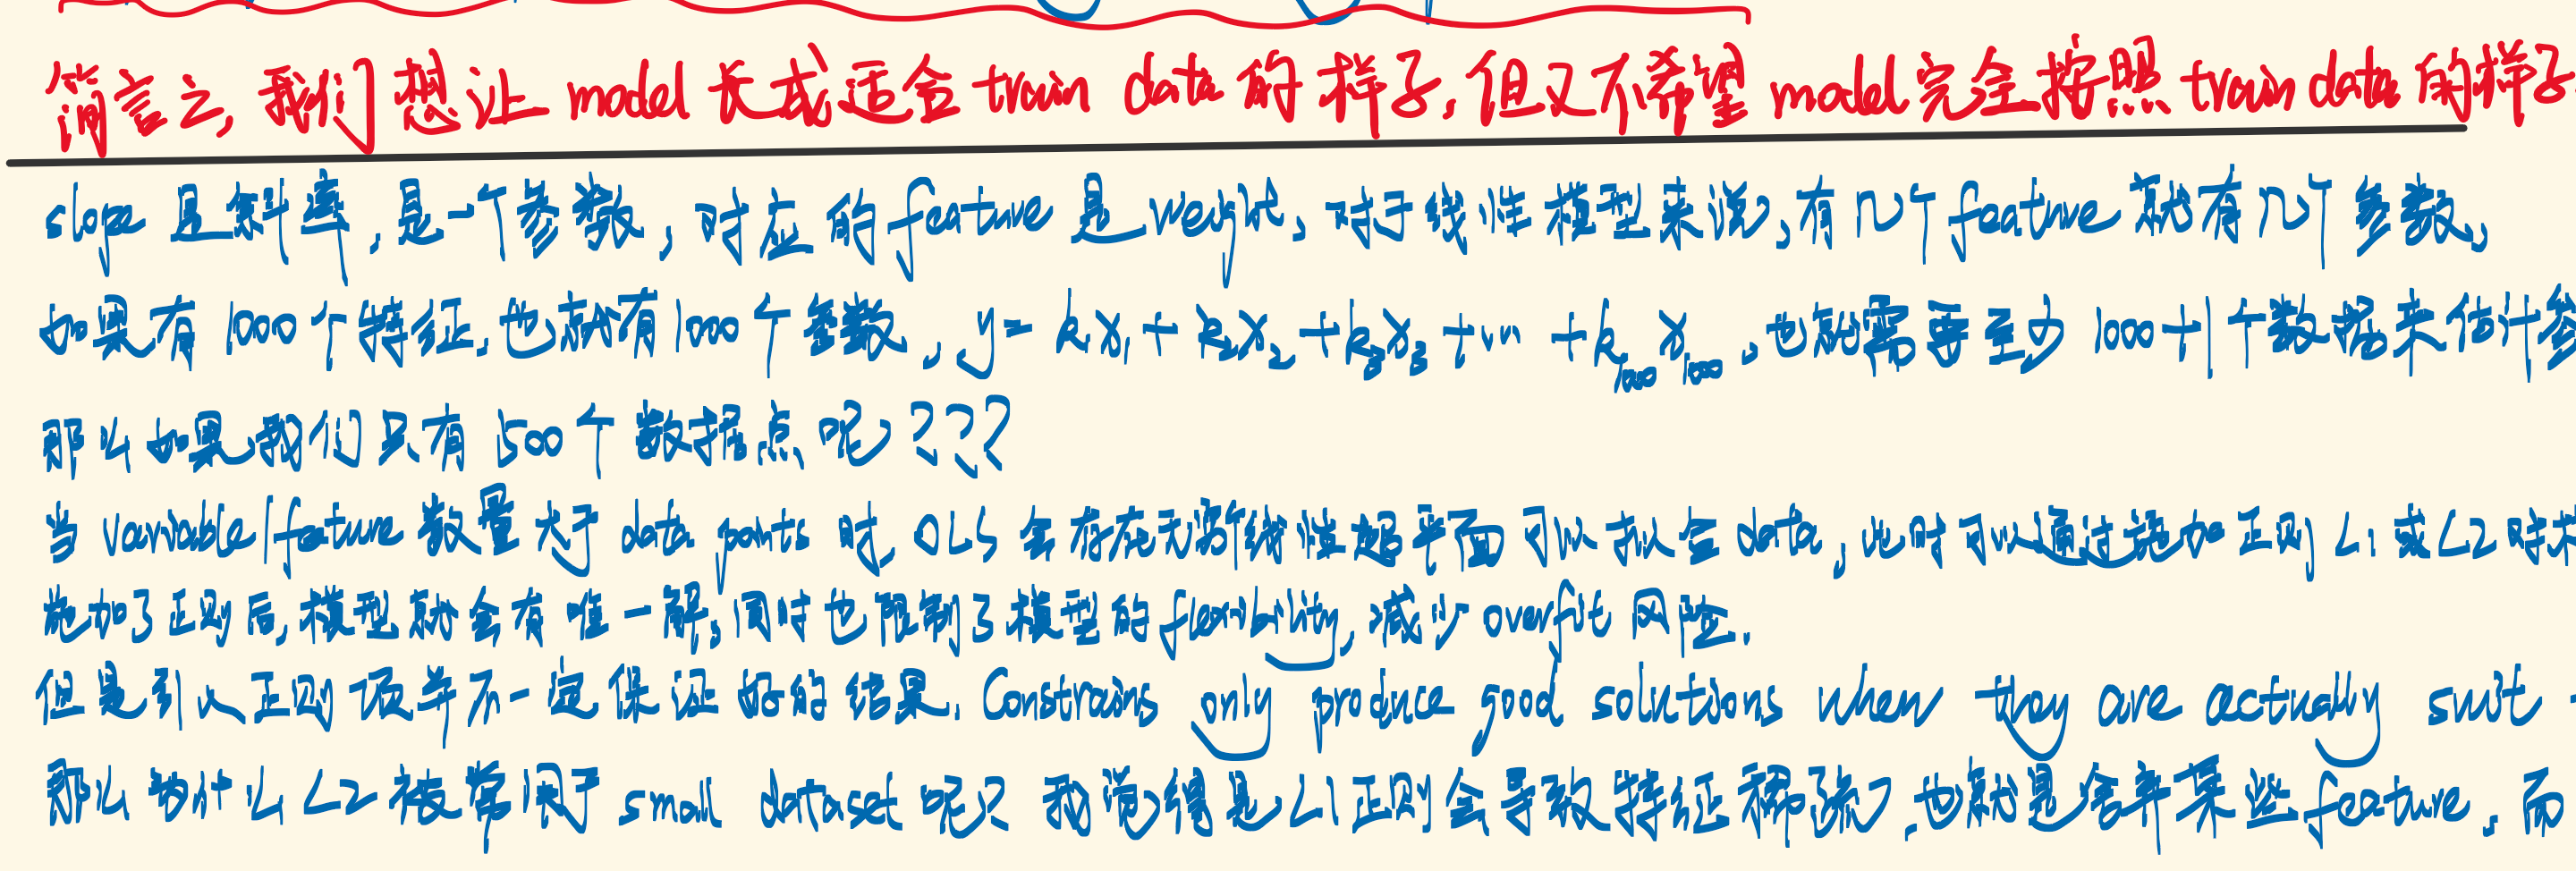 简言之, 我们想让 model 长成适合 train data 的样子, 但又不希望 model 完全按照 train data 的样子
slope 是斜率, 是一个参数, 对应的 feature 是 weight, 对于线性模型来说, 有几个 feature 就有几个参数,
如果有 1000 个特征, 也就有 1000 个参数, y = k x₁ + k₂x₂ + k₃x₃ + ... + k₁₀₀₀ x₁₀₀₀, 也就需要至少 1000+1 个数据来估计参
那么如果我们只有 500 个数据点呢???
当 variable/feature 数量大于 data points 时, OLS 会存在无数个线性超平面可以拟合 data, 此时可以通过施加正则 L1 或 L2 对
施加了正则后, 模型就会有唯一解, 同时也限制了模型的 flexibility, 减少 overfit 风险.
但是引入正则项并不一定保证好的结果. Constrains only produce good solutions when they are actually suit
那么为什么 L2 被常用于 small dataset 呢? 我觉得是 L1 正则会导致特征稀疏, 也就是舍弃某些 feature, 而